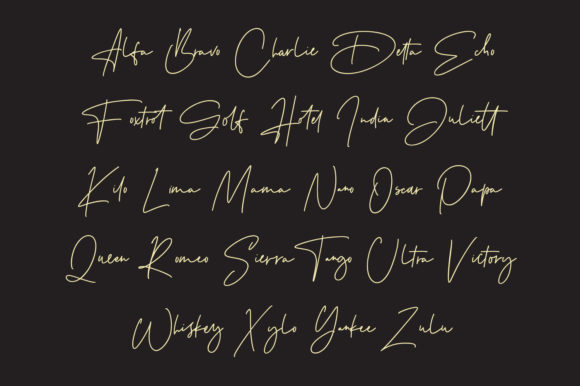 Alfa Bravo Charlie Detta Echo
Foxtrot Golf Hotel India Juliett
Kilo Lima Mama Nano Oscar Papa
Queen Romeo Sierra Tango Ultra Victory
Whiskey Xylo Yankee Zulu